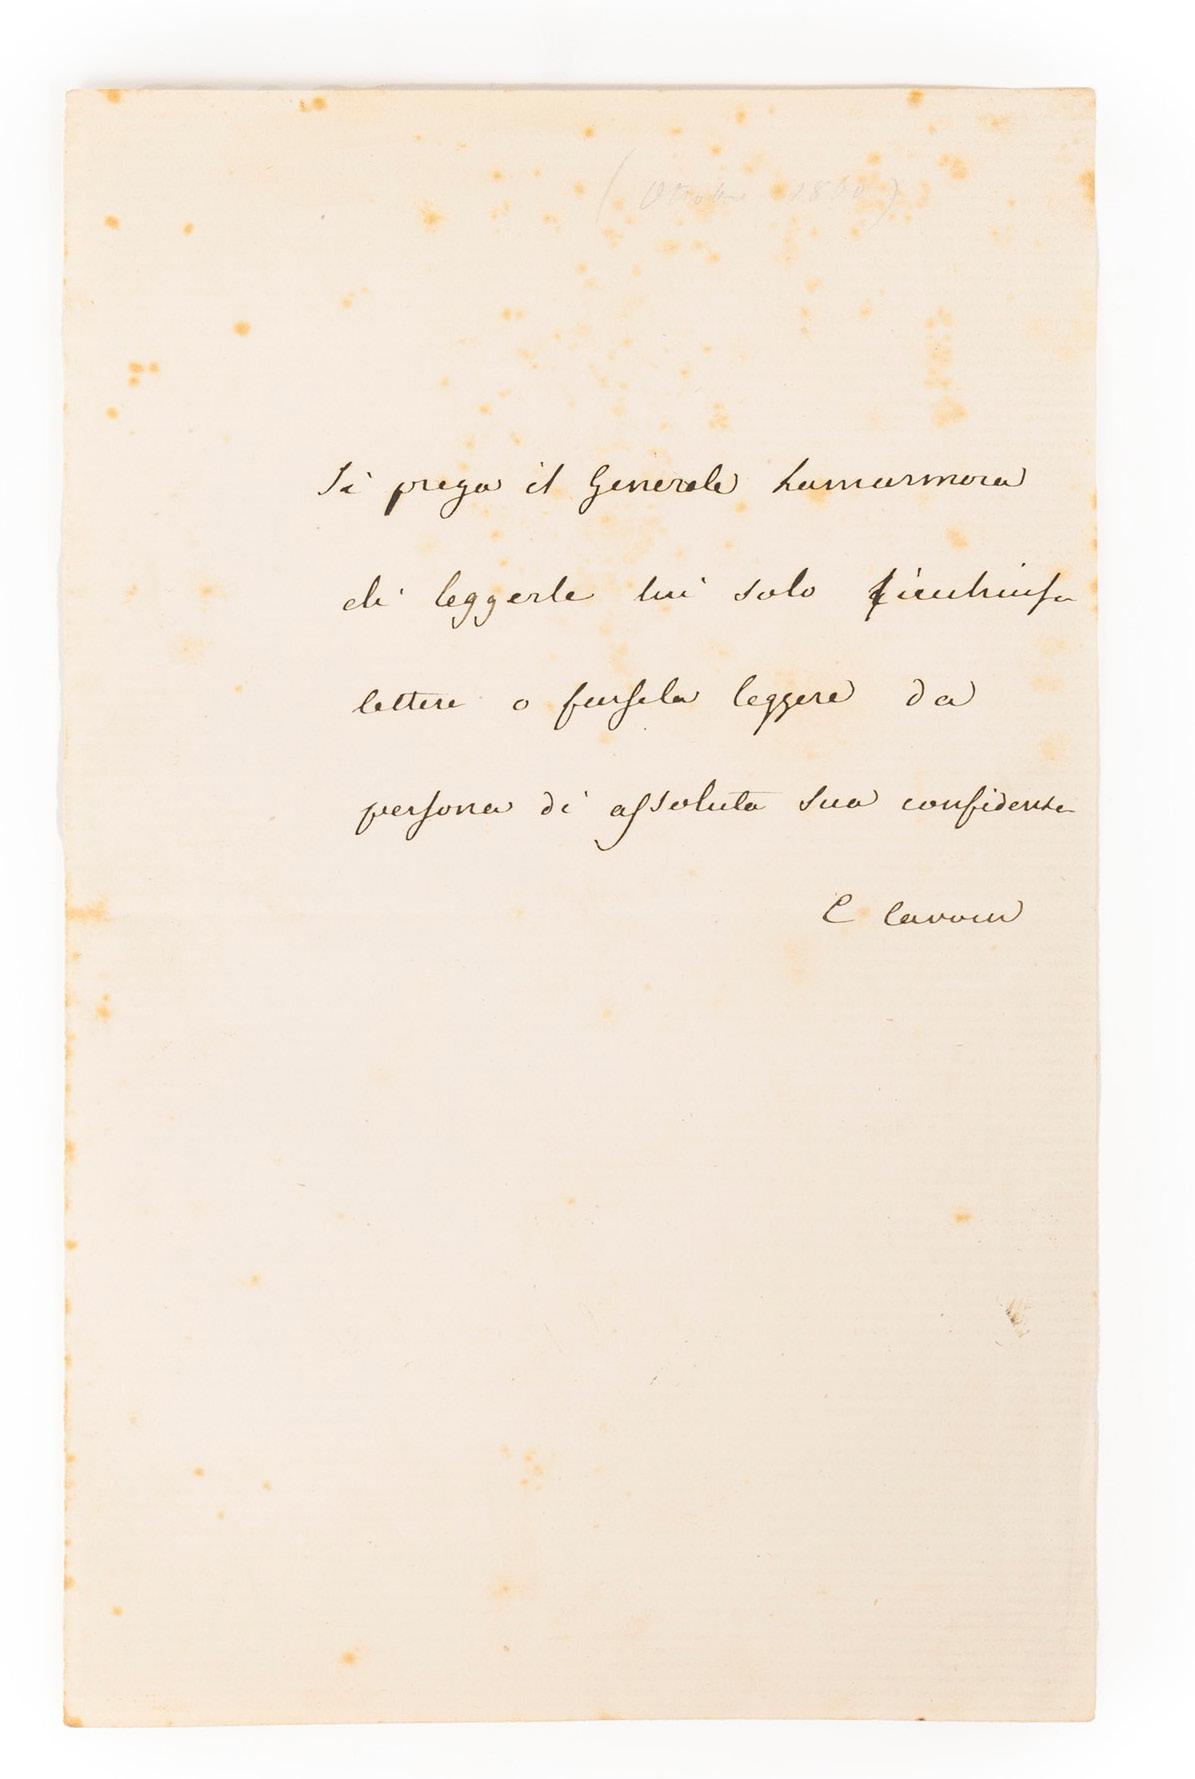 (Ottobre 1860)
Si prega il Generale Lamarmora
di leggerle lui solo l'inchiusa
lettera o farsela leggere da
persona di assoluta sua confidenza
C Cavour